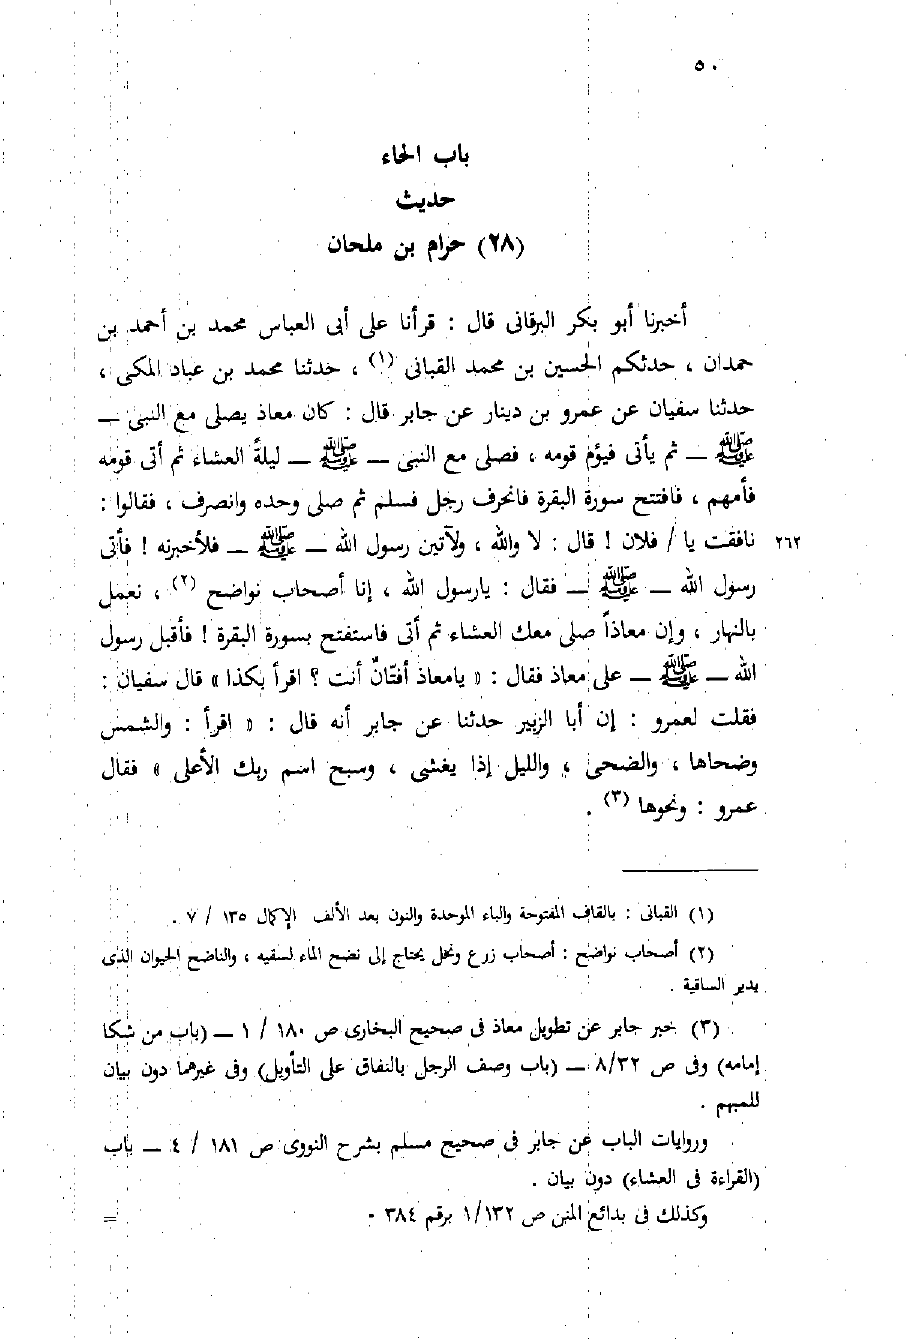 ٥٠
باب الحاء
حديث
(٢٨) حرام بن ملحان
أخبرنا أبو بكر البرقانى قال : قرأنا على أبى العباس محمد بن أحمد بن
حمدان ، حدثكم الحسين بن محمد القبانى (١) ، حدثنا محمد بن عباد المكى ،
حدثنا سفيان عن عمرو بن دينار عن جابر قال : كان معاذ يصلى مع النبى ــ
ﷺ ــ ثم يأتى فيؤم قومه ، فصلى مع النبى ــ ﷺ ــ ليلةً العشاء ثم أتى قومه
فأمهم ، فافتتح سورة البقرة فانحرف رجل فسلم ثم صلى وحده وانصرف ، فقالوا :
نافقت يا / فلان ! قال : لا والله ، ولآتين رسول الله ــ ﷺ ــ فلأخبرنه ! فأتى ٢٦٢
رسول الله ــ ﷺ ــ فقال : يارسول الله ، إنا أصحاب نواضح (٢) ، نعمل
بالنهار ، وإن معاذاً صلى معك العشاء ثم أتى فاستفتح بسورة البقرة ! فأقبل رسول
الله ــ ﷺ ــ على معاذ فقال : « يامعاذ أفتّانٌ أنت ؟ اقرأ بكذا » قال سفيان :
فقلت لعمرو : إن أبا الزبير حدثنا عن جابر أنه قال : « اقرأ : والشمس
وضحاها ، والضحى ، والليل إذا يغشى ، وسبح اسم ربك الأعلى » فقال
عمرو : ونحوها (٣) .
(١) القبانى : بالقاف المفتوحة والباء الموحدة والنون بعد الألف الإكمال ١٣٥ / ٧ .
(٢) أصحاب نواضح : أصحاب زرع ونخل يحتاج إلى نضح الماء لسقيه ، والناضح الحيوان الذى
يدير الساقية .
(٣) خبر جابر عن تطويل معاذ فى صحيح البخارى ص ١٨٠ / ١ ــ (باب من شكا
إمامه) وفى ص ٨/٣٢ ــ (باب وصف الرجل بالنفاق على التأويل) وفى غيرهما دون بيان
للمبهم .
وروايات الباب عن جابر فى صحيح مسلم بشرح النووى ص ١٨١ / ٤ ــ باب
(القراءة فى العشاء) دون بيان .
وكذلك فى بدائع المنن ص ١/١٣٢ برقم ٣٨٤ . =